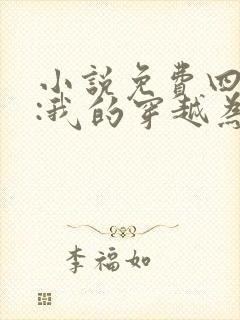 小說免費四
:我的穿越為
李福如